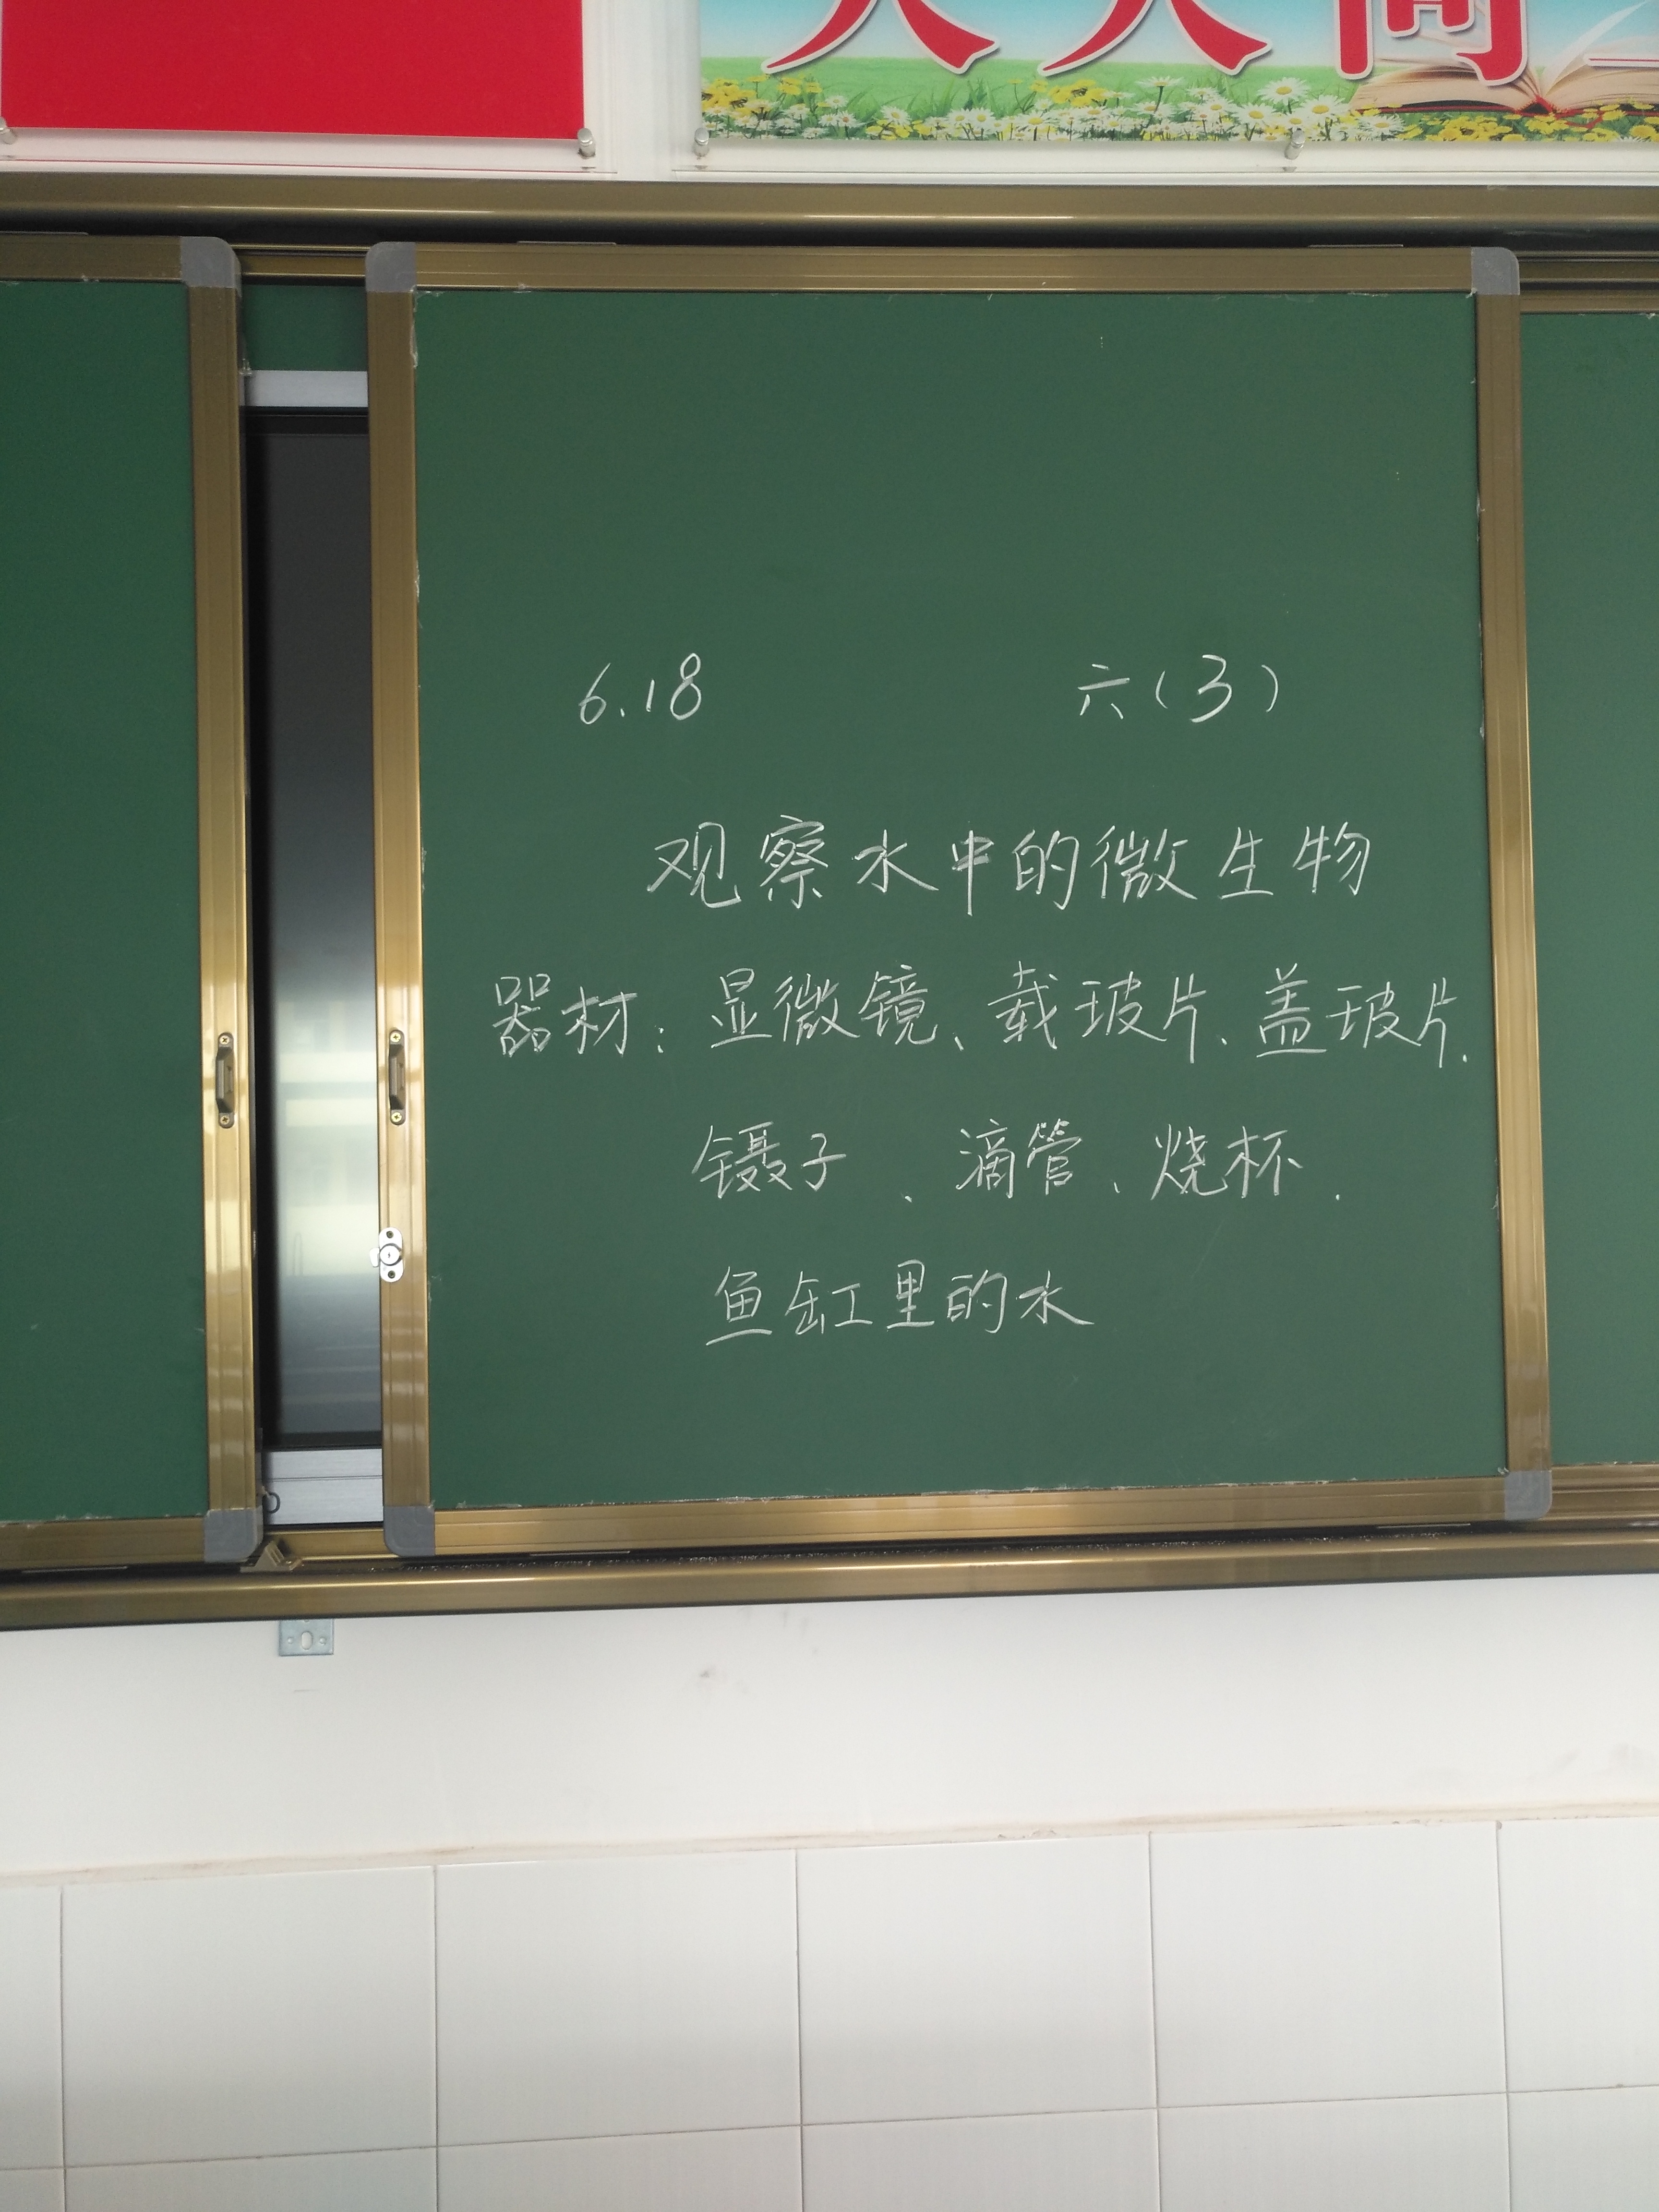 6.18 六(3)
观察水中的微生物
器材:显微镜、载玻片、盖玻片、
镊子、滴管、烧杯、
鱼缸里的水